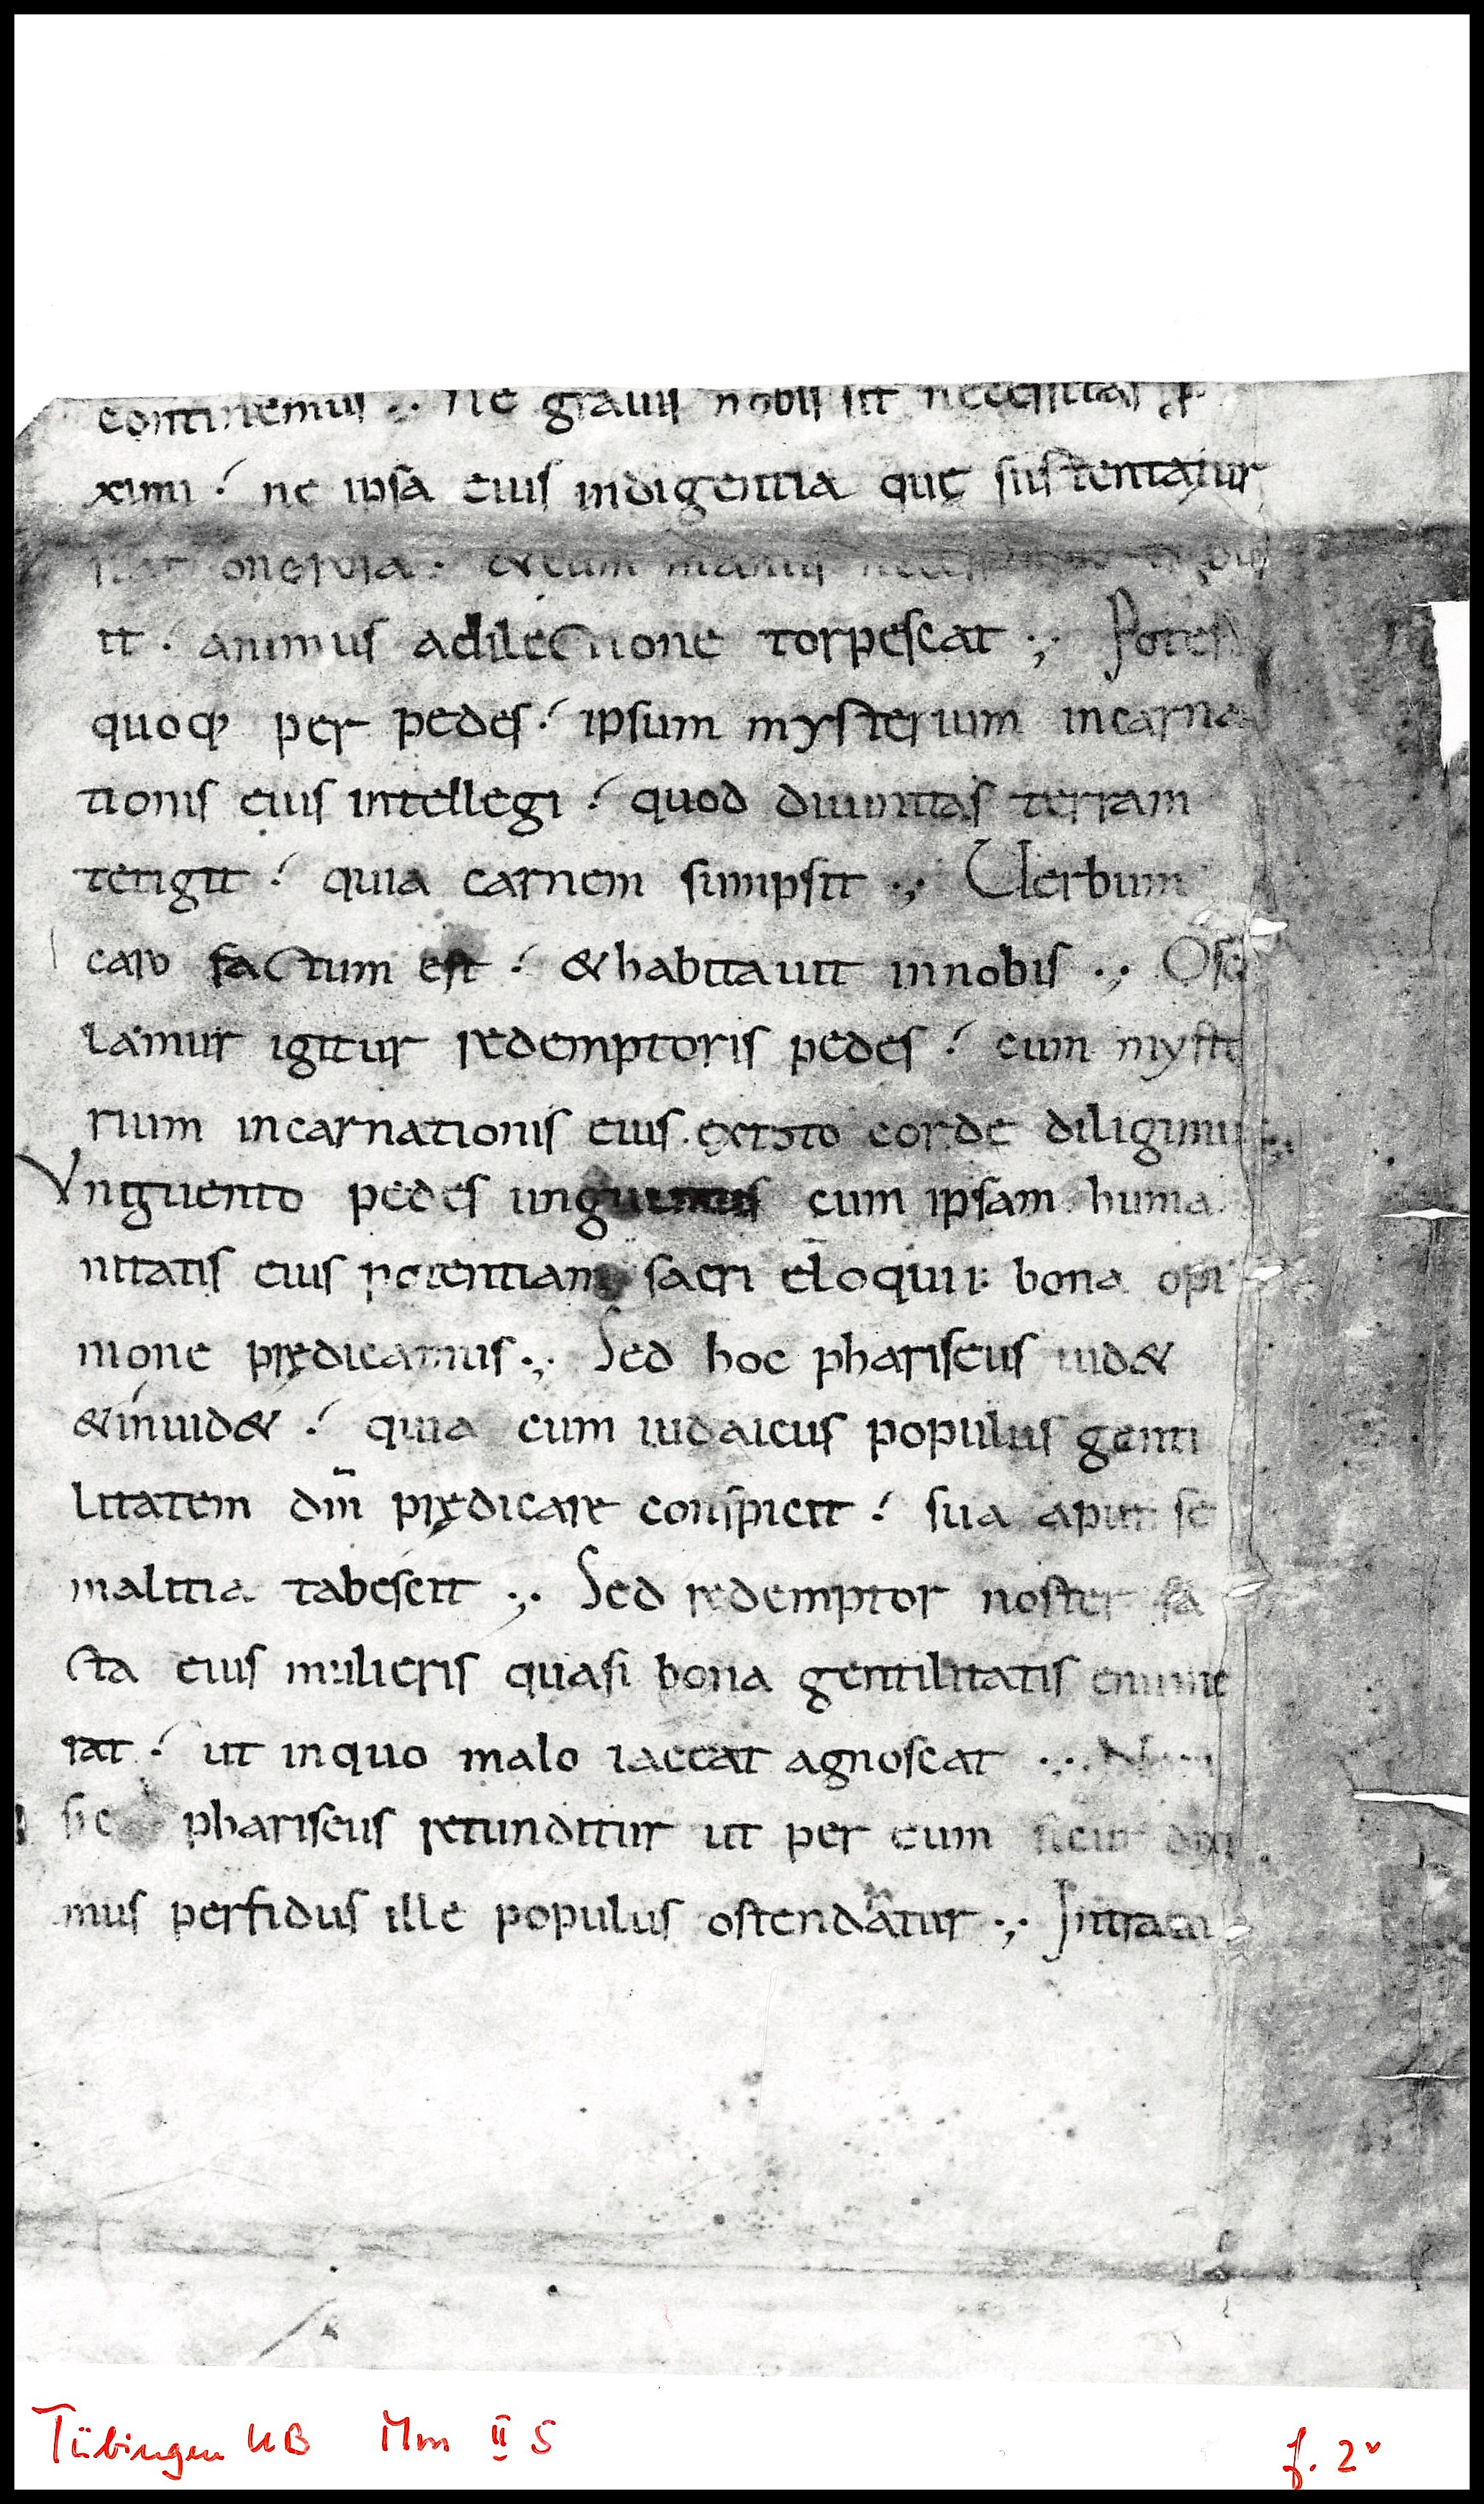 continemus ·,· ne grauis nobis sit necessitas p
ximi ⸵ ne ipsa eius indigentia quę sustentatur
fiat onerosa · & cum manus
it · animus a dilectione torpescat ·,· Potest
quoq; per pedes ⸵ ipsum mysterium incarna
tionis eius intellegi ⸵ quod diuinitas terram
tetigit ⸵ quia carnem sumpsit ·,· Uerbum
caro factum est ⸵ & habitauit in nobis ·,· Oscu
lamur igitur redemptoris pedes ⸵ cum myste
rium incarnationis eius ex toto corde diligimus ·,·
Unguento pedes unguemus cum ipsam huma
nitatis eius potentiam sacri eloquii bona opi
nione prędicamus ·,· Sed hoc phariseus uid&
& inuid& ⸵ quia cum iudaicus populus genti
litatem dm̄ prędicare conspicit ⸵ sua aput se
malitia tabescit ·,· Sed redemptor noster fa
cta eius mulieris quasi bona gentilitatis enume
rat ⸵ ut in quo malo iaceat agnoscat ·,·
sic phariseus retunditur ut per eum sicut dixi
mus perfidus ille populus ostendatur ·,· Intraui
Tübingen UB Mm II 5
f. 2v